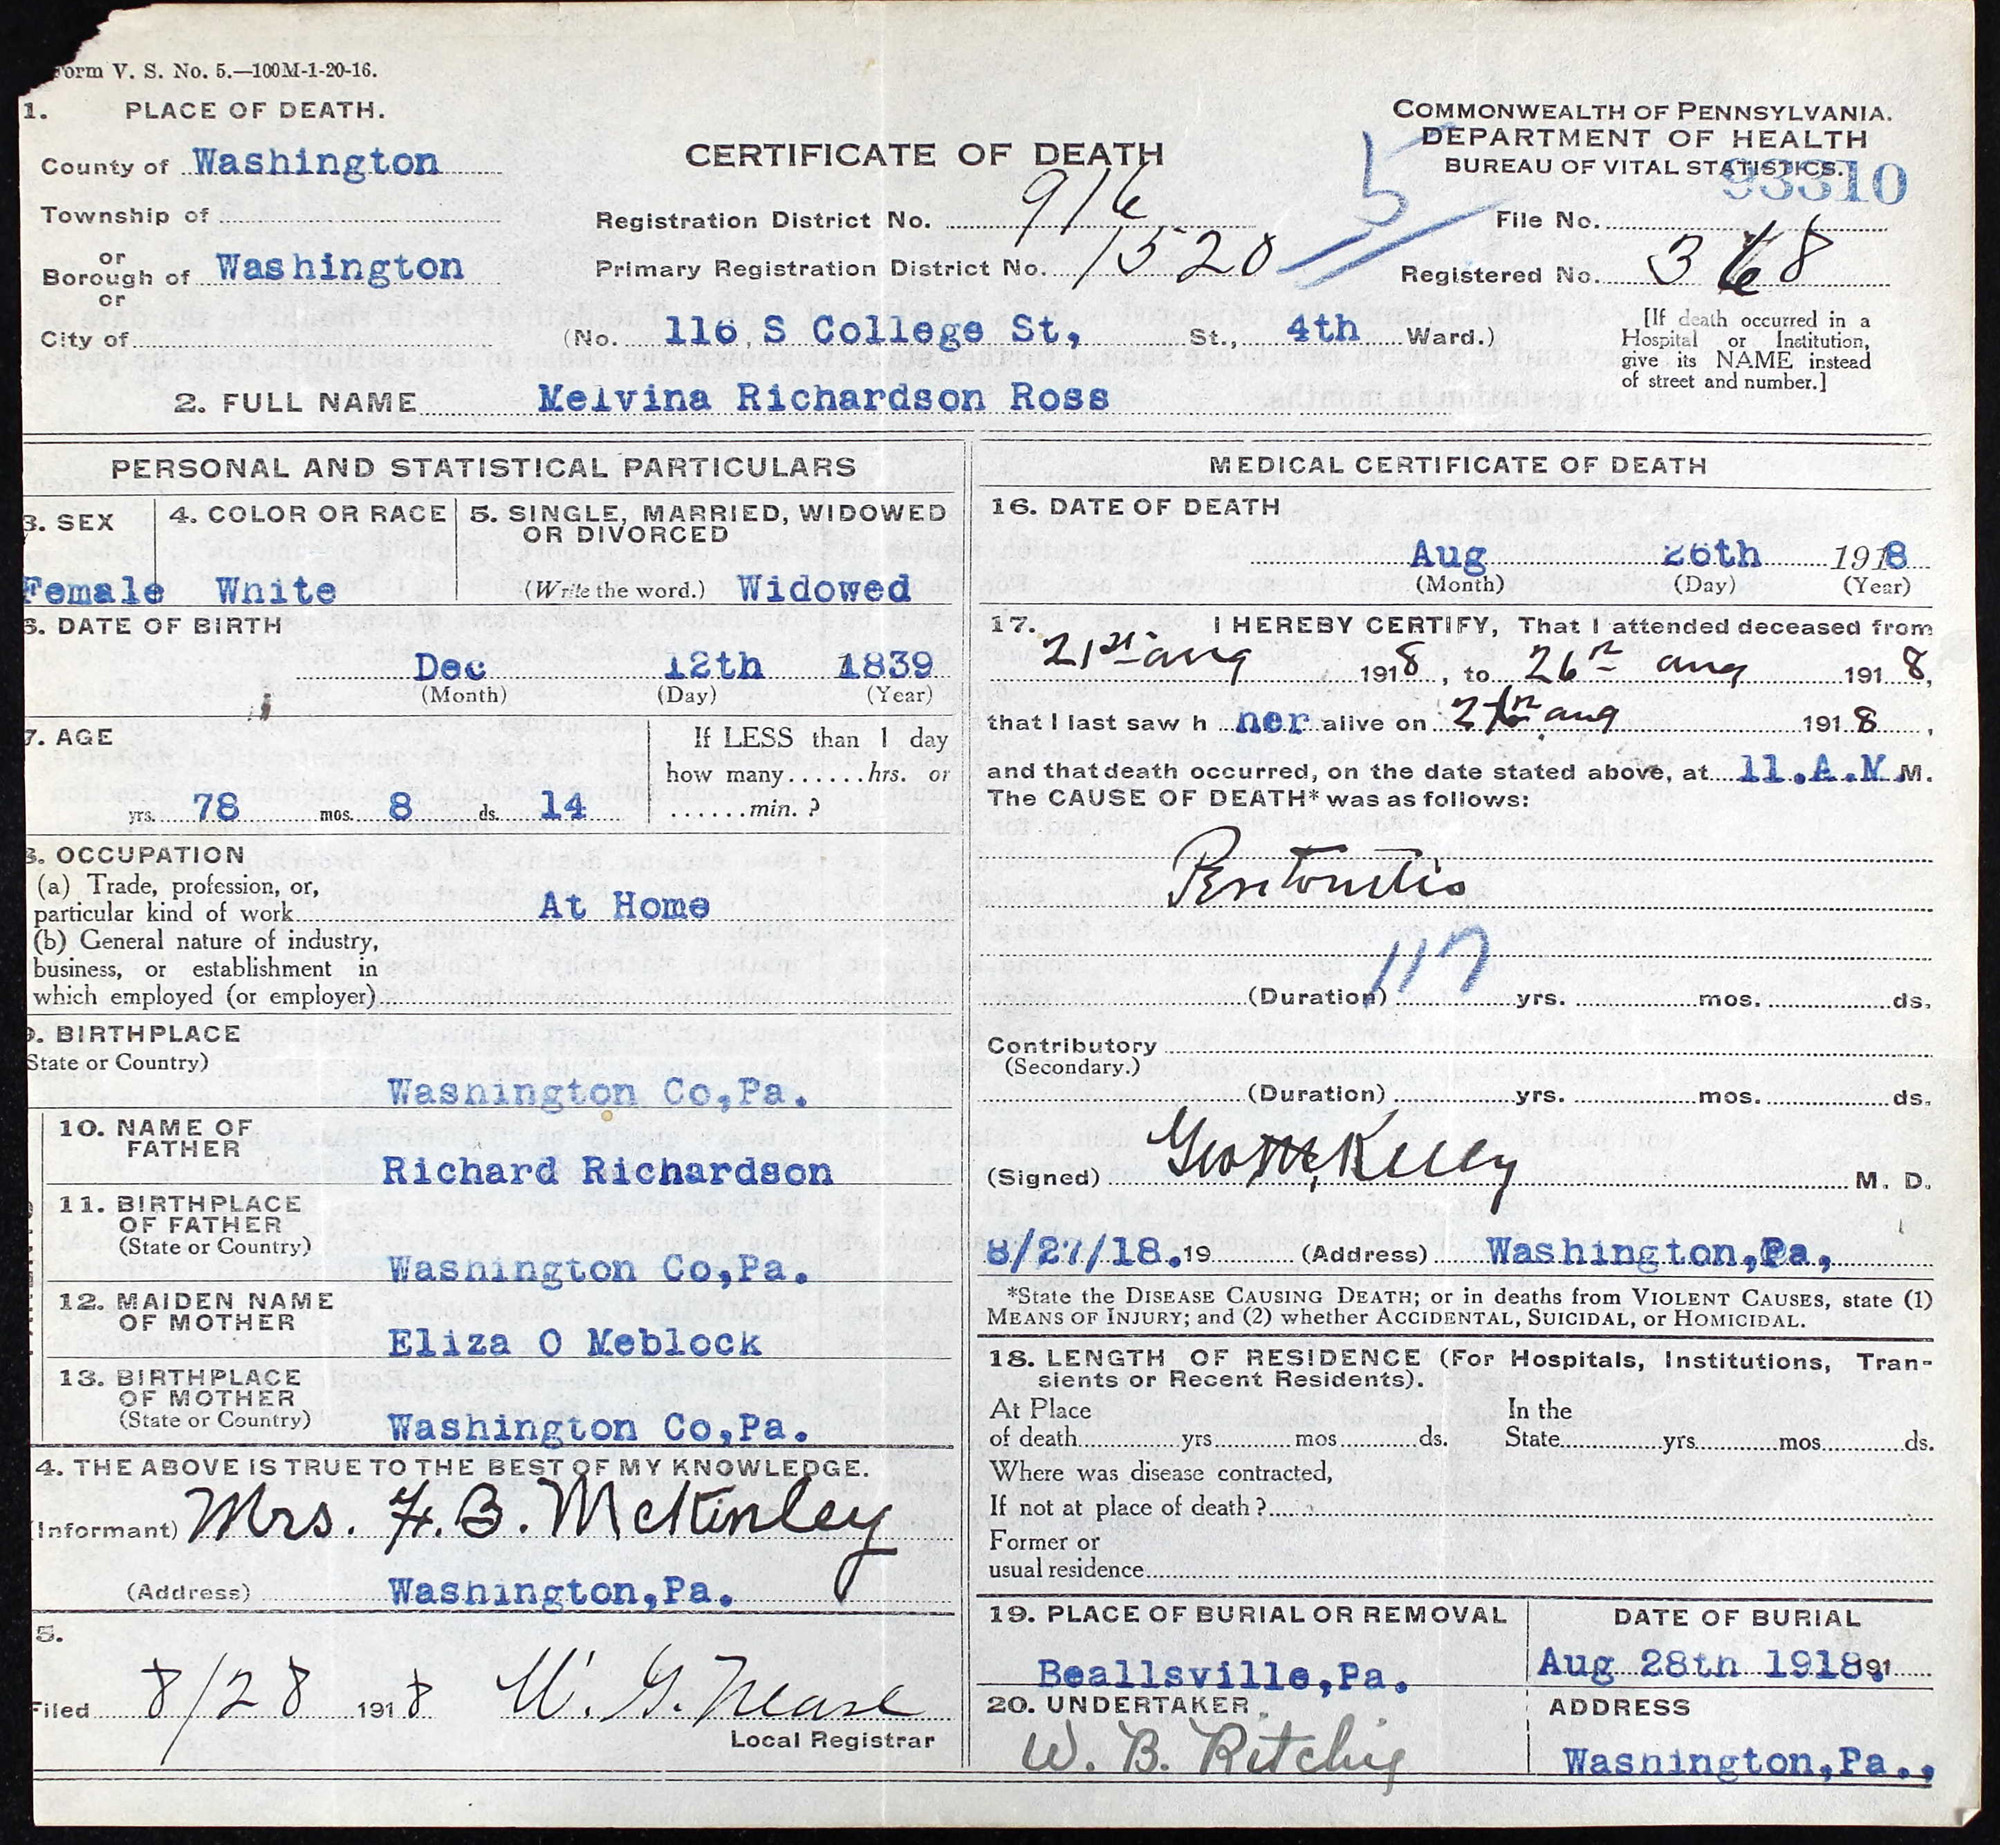 Form V. S. No. 5.—100M-1-20-16.
1. PLACE OF DEATH.
County of Washington
Township of
or
Borough of Washington
or
City of
CERTIFICATE OF DEATH
Registration District No. 916
Primary Registration District No. 1520
5
COMMONWEALTH OF PENNSYLVANIA.
DEPARTMENT OF HEALTH
BUREAU OF VITAL STATISTICS.
93310
File No.
Registered No. 368
(No. 116 S College St, St., 4th Ward.)
[If death occurred in a
Hospital or Institution,
give its NAME instead
of street and number.]
2. FULL NAME Melvina Richardson Ross
PERSONAL AND STATISTICAL PARTICULARS
3. SEX
Female
4. COLOR OR RACE
White
5. SINGLE, MARRIED, WIDOWED
OR DIVORCED
(Write the word.) Widowed
6. DATE OF BIRTH
Dec 12th 1839
(Month) (Day) (Year)
7. AGE
yrs. 78 mos. 8 ds. 14
If LESS than 1 day
how many......hrs. or
......min. ?
8. OCCUPATION
(a) Trade, profession, or,
particular kind of work At Home
(b) General nature of industry,
business, or establishment in
which employed (or employer)
9. BIRTHPLACE
State or Country)
Washington Co,Pa.
10. NAME OF
FATHER
Richard Richardson
11. BIRTHPLACE
OF FATHER
(State or Country)
Washington Co,Pa.
12. MAIDEN NAME
OF MOTHER
Eliza O Meblock
13. BIRTHPLACE
OF MOTHER
(State or Country)
Washington Co,Pa.
4. THE ABOVE IS TRUE TO THE BEST OF MY KNOWLEDGE.
(Informant) Mrs. F. B. McKinley
(Address) Washington,Pa.
5.
Filed 8/28 1918 W. G. Nease
Local Registrar
MEDICAL CERTIFICATE OF DEATH
16. DATE OF DEATH
Aug 26th 1918
(Month) (Day) (Year)
17. I HEREBY CERTIFY, That I attended deceased from
21st aug 1918, to 26th aug 1918,
that I last saw h her alive on 26th aug 1918,
and that death occurred, on the date stated above, at 11.A.M M.
The CAUSE OF DEATH* was as follows:
Peritonitis
117
(Duration) yrs. mos. ds.
Contributory
(Secondary.)
(Duration) yrs. mos. ds.
(Signed) Geo McKelley M. D.
8/27/18. 19 (Address) Washington,Pa,
*State the DISEASE CAUSING DEATH; or in deaths from VIOLENT CAUSES, state (1)
MEANS OF INJURY; and (2) whether ACCIDENTAL, SUICIDAL, or HOMICIDAL.
18. LENGTH OF RESIDENCE (For Hospitals, Institutions, Tran-
sients or Recent Residents).
At Place In the
of death yrs mos ds. State yrs mos ds.
Where was disease contracted,
If not at place of death ?
Former or
usual residence
19. PLACE OF BURIAL OR REMOVAL
Beallsville,Pa.
DATE OF BURIAL
Aug 28th 1918. 191
20. UNDERTAKER
W. B. Ritchie
ADDRESS
Washington,Pa.,